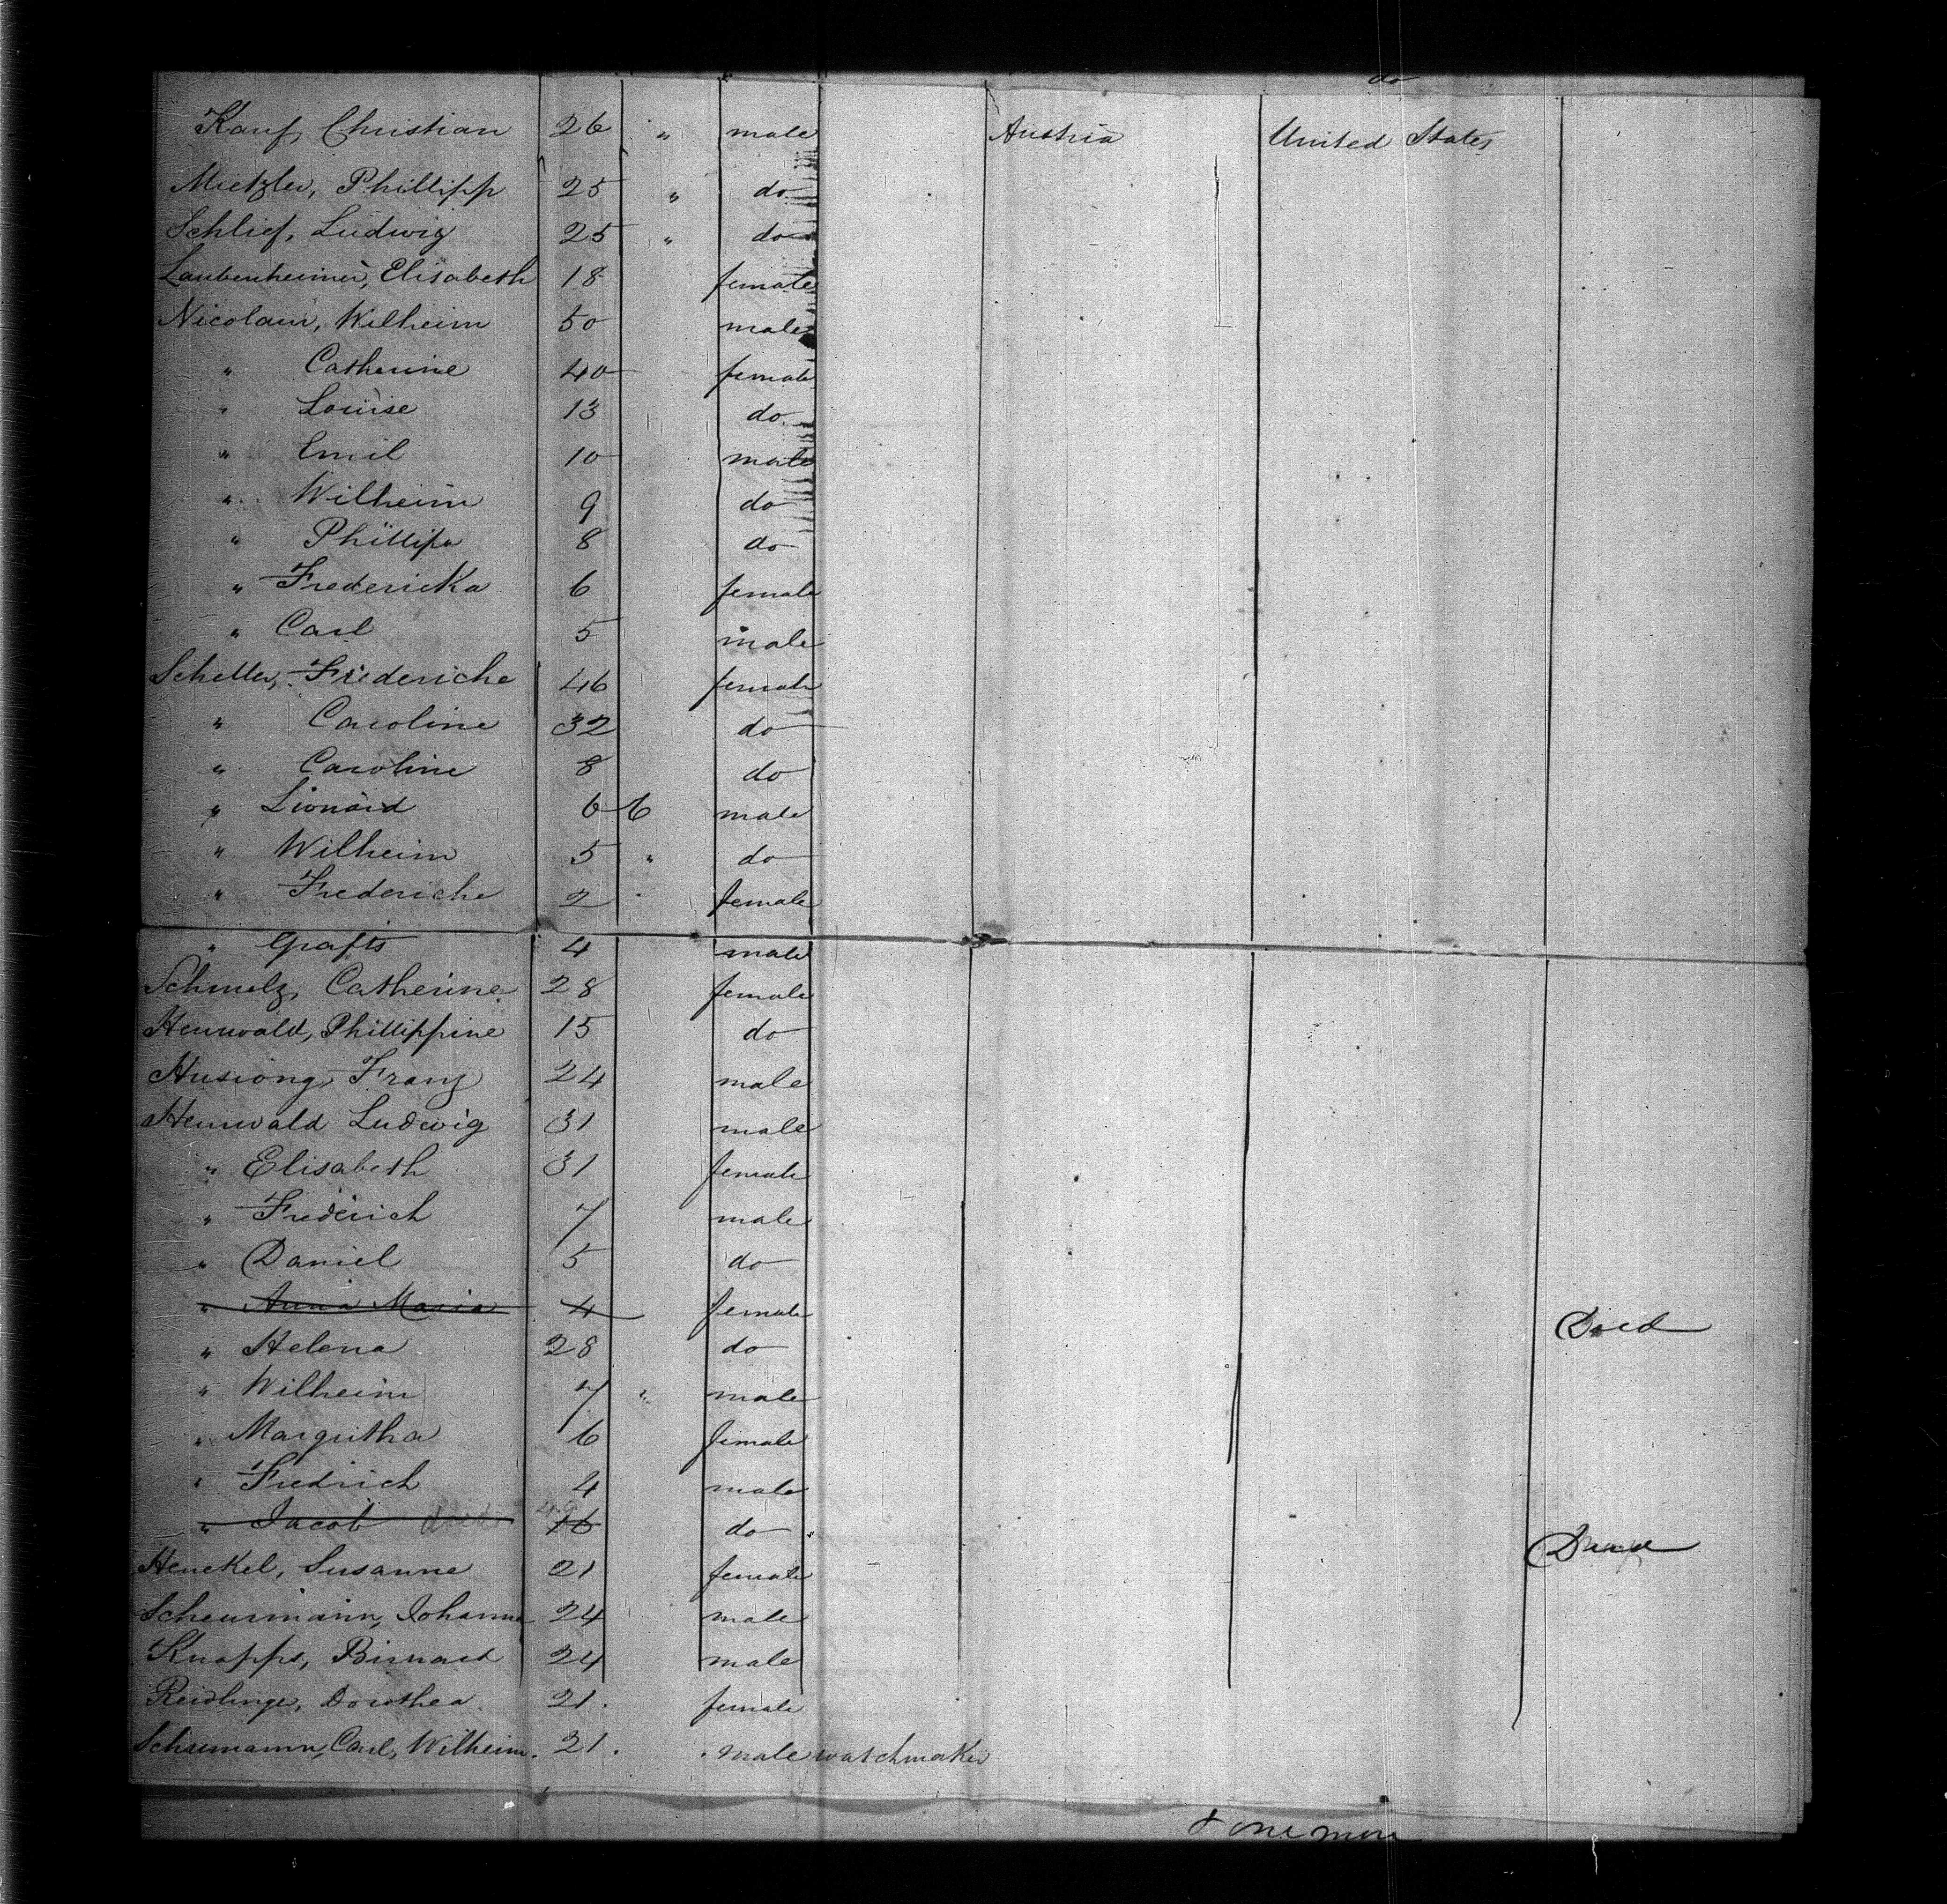 do
Kauf, Christian 26 " male Austria United States
Mietzler, Phillipp 25 " do
Schlief, Ludwig 25 " do
Laubenheimer, Elisabeth 18 female
Nicolaus, Wilheim 50 male
" Catherine 40 female
" Louise 13 do
" Emil 10 male
" Wilheim 9 do
" Phillipp 8 do
" Fredericka 6 female
" Carl 5 male
Schetter, Friederiche 46 female
" Caroline 32 do
" Caroline 8 do
" Lionard 6 6 male
" Wilheim 5 " do
" Frederiche 2 female
" 4 male
Schmelz, Catherine 28 female
Heuwald, Phillippine 15 do
Husiong, Franz 24 male
Heuwald Ludwig 31 male
" Elisabeth 31 female
" Frederich 7 male
" Daniel 5 do
" Anna Maria 4 female Died
" Helena 28 do
" Wilheim 7 " male
" Margritha 6 female
" Fredrich 4 male
" Jacob died 16 do Died
Henckel, Susanne 21 female
Scheurmann, Johanna 24 male
Knapps, Birnard 24 male
Reidlinge, Dorothea 21. female
Schumann, Carl, Wilheim. 21. male watchmaker
& one more